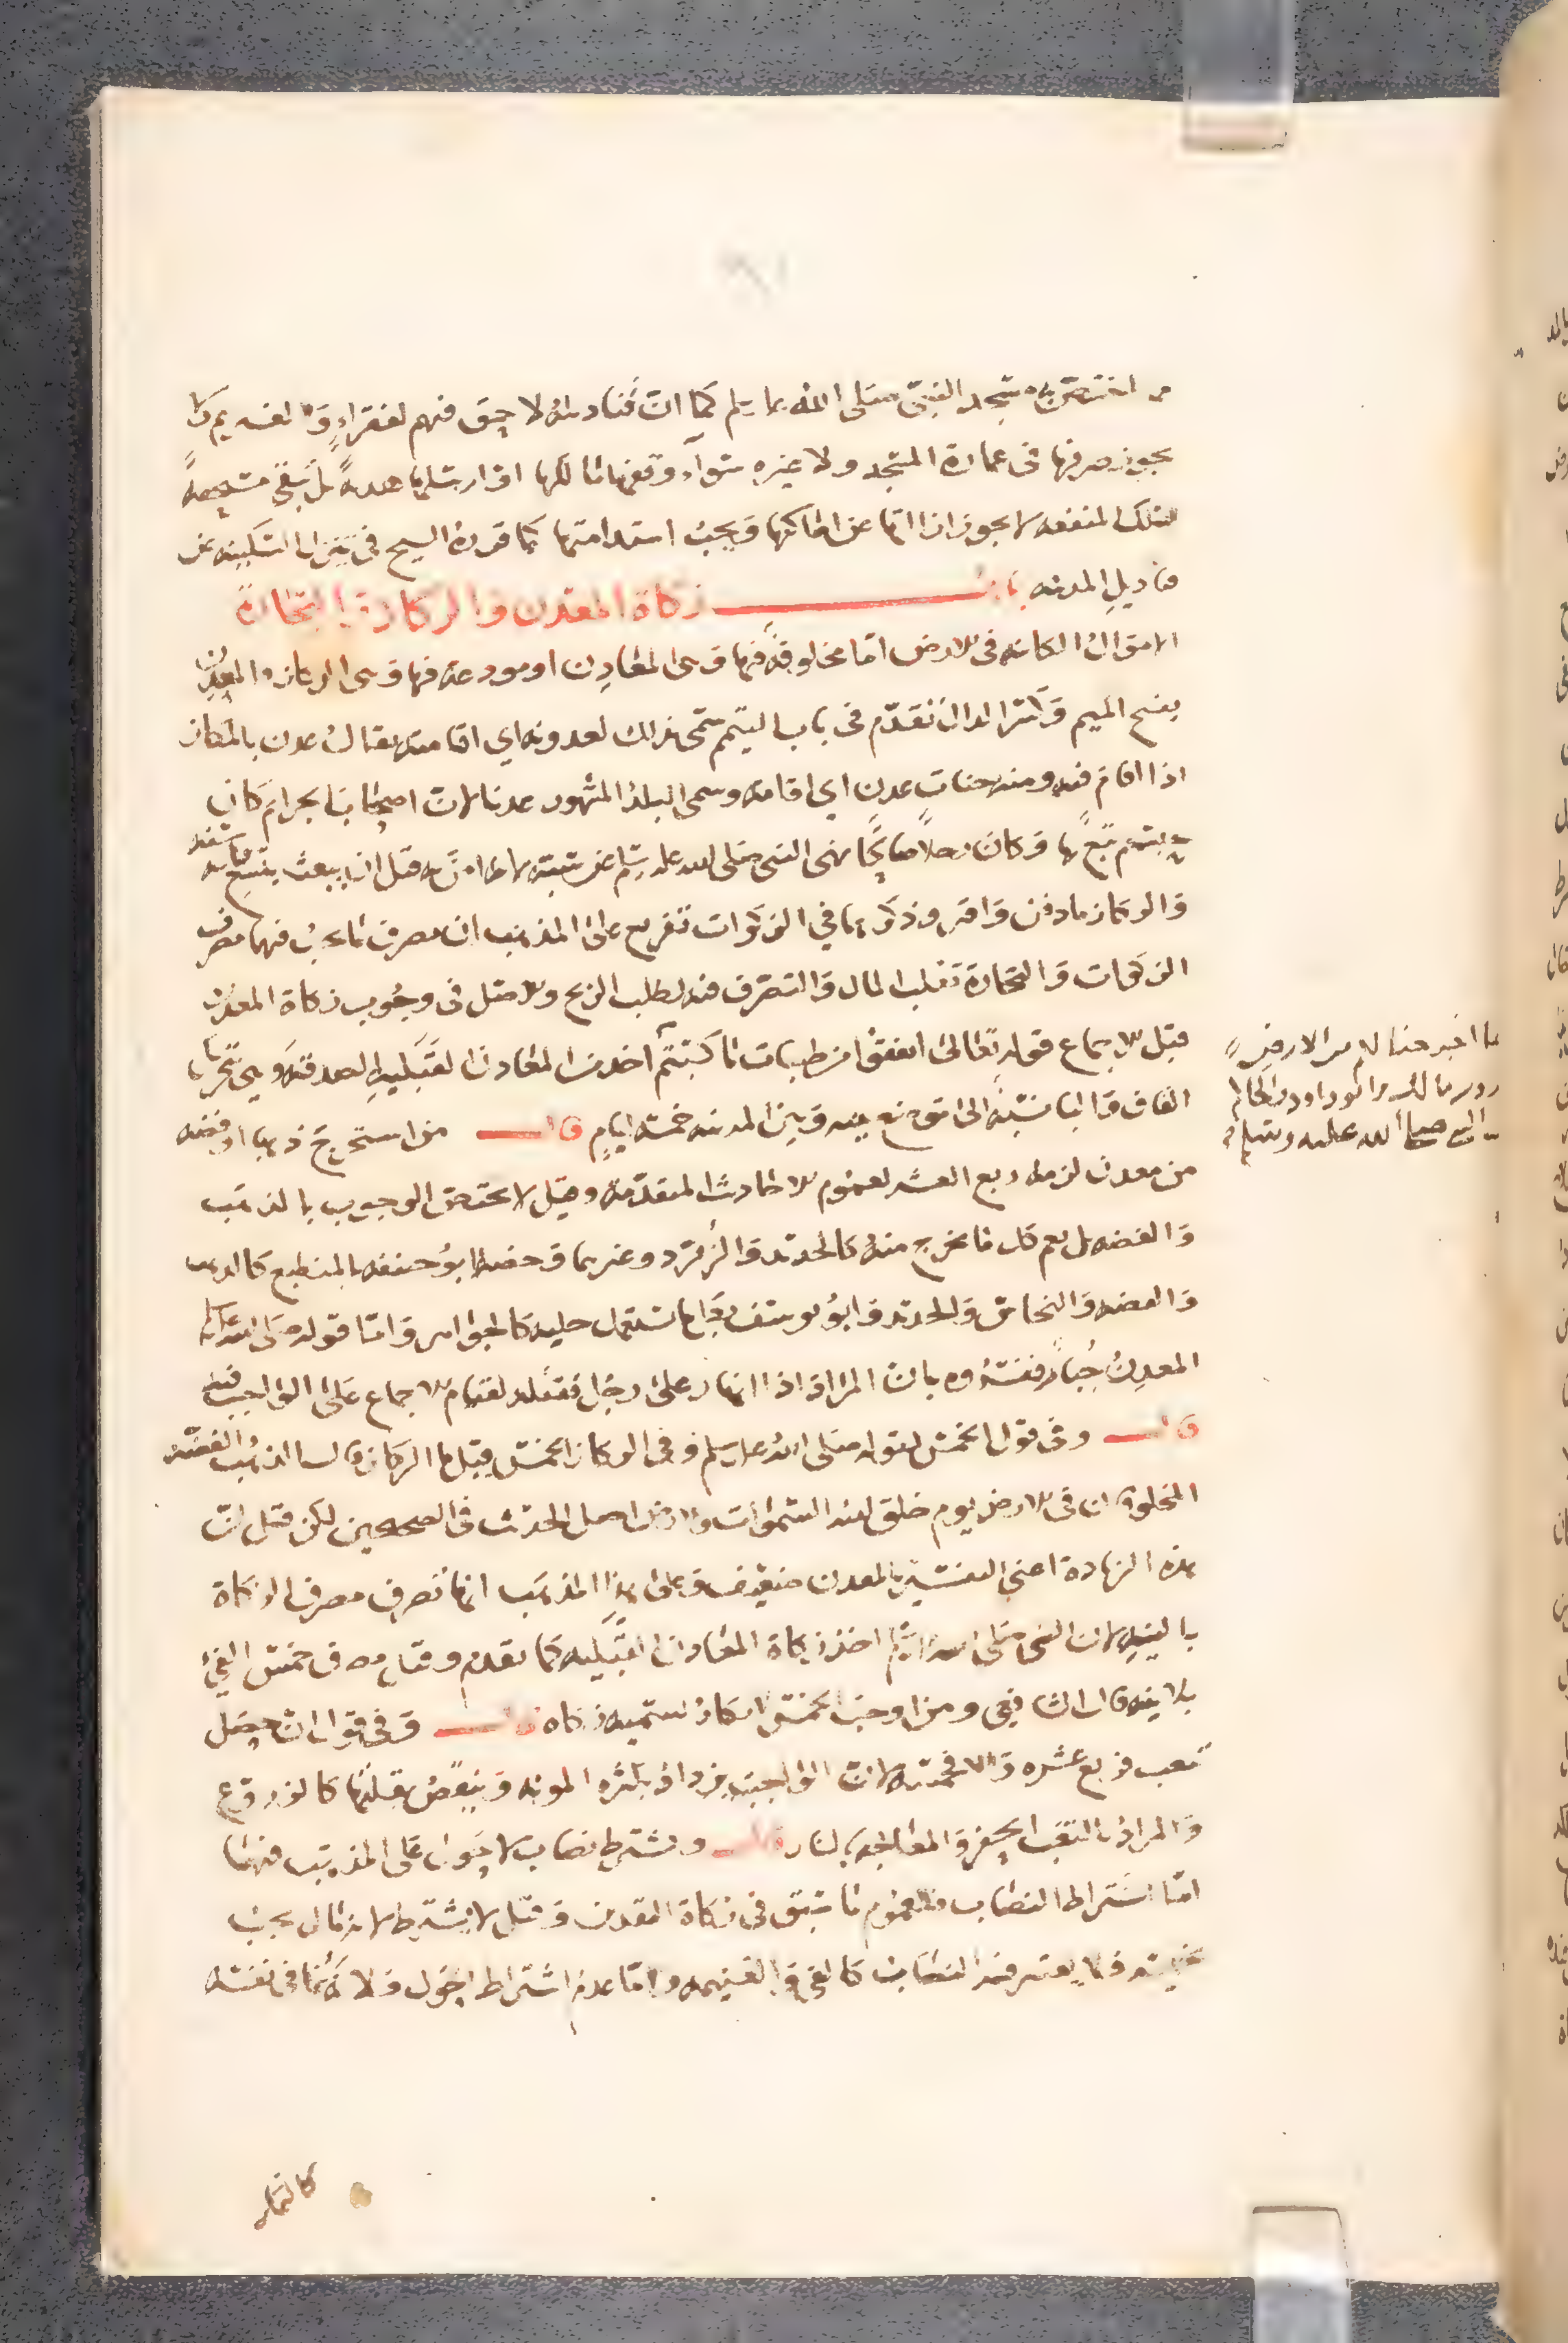 اختص به مسجد النبي صلى الله عليه وسلم كما ان قناديله لا حق فيهم لفقراء ولا لغيرهم كما
يجوز صرفها في عمارة المسجد ولا غيره سواء وقفها مالكها او ارسلها هدية بل تبقى مستحقة
لتلك المنفعة لا يجوز ازالتها عن اماكنها ويجب استدامتها كما قرره الشيخ في تنزل السكينة على
قناديل المدينة باب زكاة المعدن والركاز والتجارة
الاموال الكائنة في الارض اما مخلوقة فيها وهي المعادن او مودعة فيها وهي الركاز والمعدن
بفتح الميم وكسر الدال تقدم في باب التيمم سمى بذلك لعدونه اي اقامته يقال عدن بالمكان
اذا اقام فيه ومنه جنات عدن اي اقامة وسمى البلد المشهور عدنا لان اصحاب الجرائم كان
يحبسهم تبع بها وكان رجلا صالحا نهى النبي صلى الله عليه وسلم عن سبه لانه امن به قبل ان يبعث
والركاز ما دفن واقر وذكرهما في الزكوات تفريع على المذهب ان مصرف ما يجب فيهما مصرف
الزكوات والتجارة تقليب المال والتصرف فيه لطلب الربح والاصل في وجوب زكاة المعدن
قبل الاجماع قوله تعالى انفقوا من طيبات ما كسبتم اخذ من المعادن القبلية الصدقة وهي بتحريك
القاف والباء نسبة الى موضع بينه وبين المدينة خمسة ايام قال من استخرج ذهبا او فضة
من معدن لزمه ربع العشر لعموم الاحاديث المتقدمة وقيل لا يختص الوجوب بالذهب
والفضة بل يعم كل ما يخرج منه كالحديد والزمرد وغيرهما وخصه ابو حنيفة بالمنطبع كالذهب
والفضة والنحاس والحديد وابو يوسف بما يستعمل حلية كالجواهر واما قوله صلى الله عليه
المعدن جبار ففسروه بان المراد اذا انهار على رجل فقتله لقيام الاجماع على الواجب فيه
قال وفي قول الخمس لقوله صلى الله عليه وسلم وفي الركاز الخمس قيل ما الركاز قال الذهب والفضة
المخلوقان في الارض يوم خلق الله السموات والارض اصل الحديث في الصحيحين لكن قيل ان
هذه الزيادة اعني التفسير بالمعدن ضعيف وعلى هذا المذهب انها تصرف مصرف الزكاة
بالنية لان النبي صلى الله عليه وسلم اخذ زكاة المعادن القبلية كما تقدم وقيل مصرف خمس الفيء
بلا نية قال الشافعي ومن اوجب الخمس لا تسميه زكاة قال وفي قول ان حصل
بتعب فربع عشره والا فخمسه لان الواجب يزداد بكثرة المونة وينقص بقلتها كالزروع
والمراد بالتعب الحفر والمعالجة بالنار قال ويشترط نصاب لا حول على المذهب فيهما
اما اشتراط النصاب فلعموم ما سبق في زكاة المعدن وقيل لا يشترط لانه مال يجب
تخميسه فلا يعتبر فيه النصاب كالفيء والغنيمة واما عدم اشتراط الحول فلانه نما في نفسه
كالثمار
ما اخرجنا لكم من الارض
وروى مالك وابو داود والحاكم
ان النبي صلى الله عليه وسلم